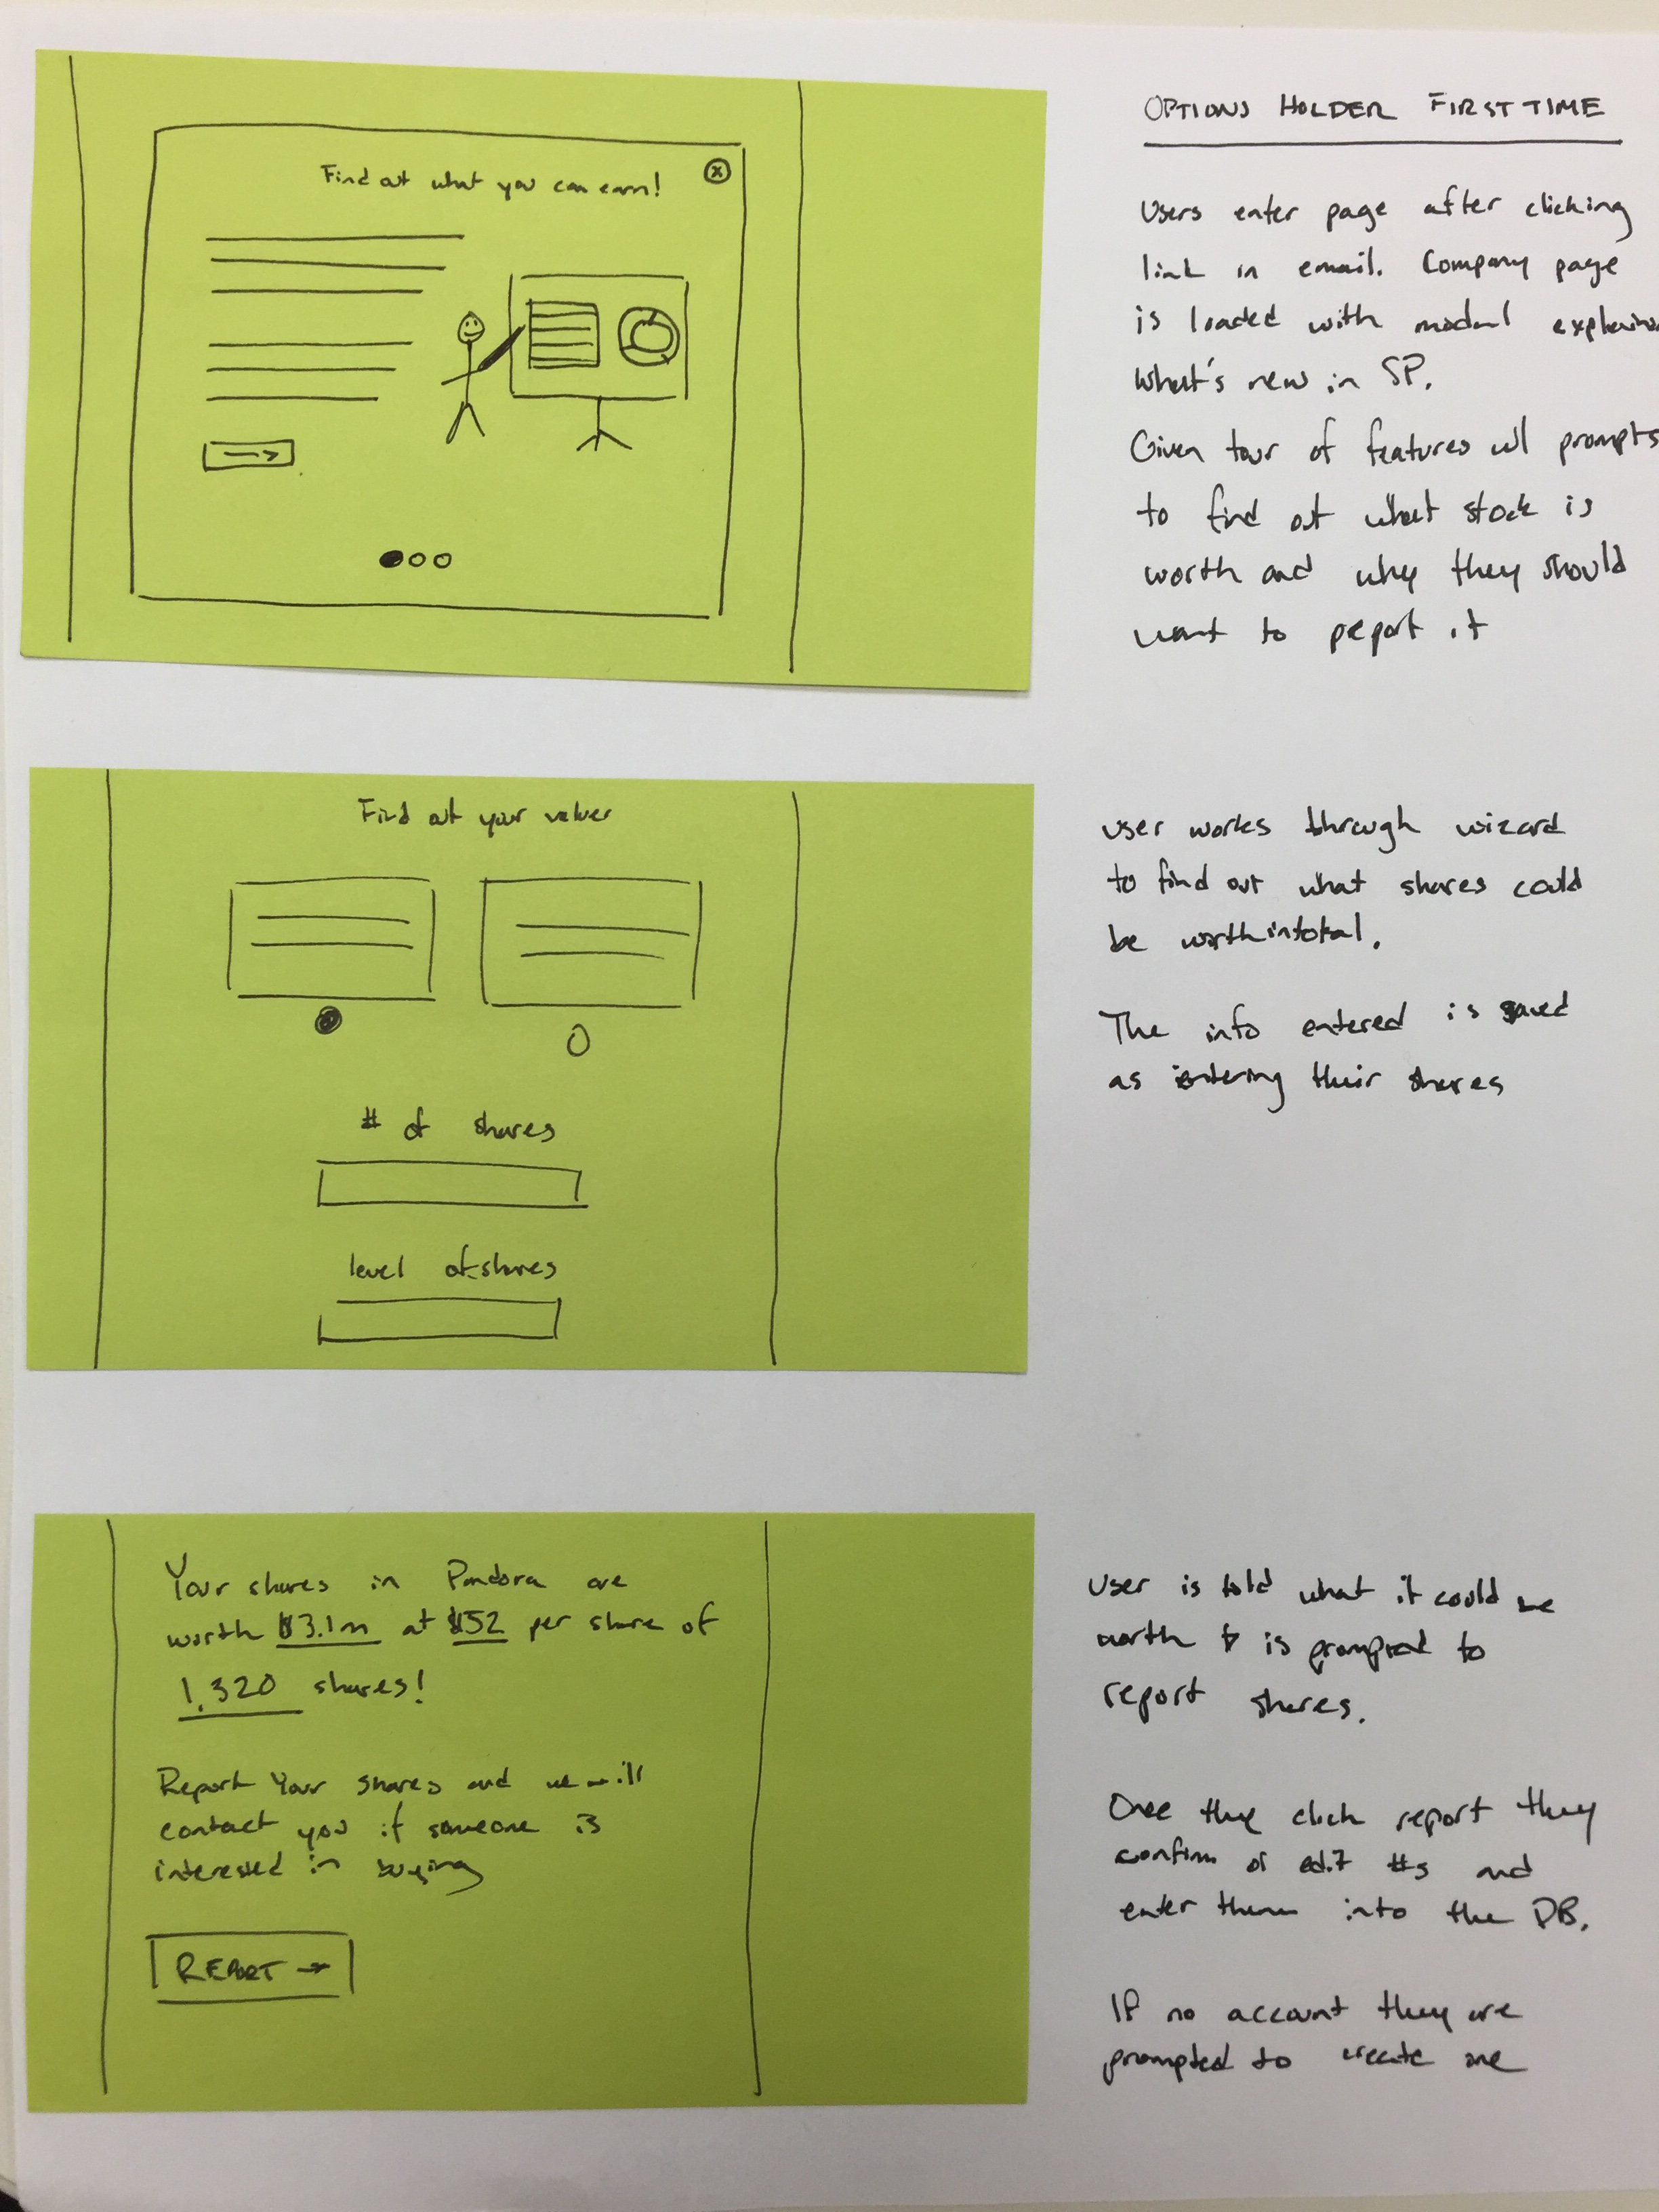 OPTIONS HOLDER FIRST TIME
Find out what you can earn!
Users enter page after clicking
link in email. Company page
is loaded with modal
what's new in SP.
Given tour of features w/ prompts
to find out what stock is
worth and why they should
want to peport it
Find out your value
# of shares
level of shares
user works through wizard
to find out what shares could
be worth in total.
The info entered is saved
as entering their shares
Your shares in Pandora are
worth $3.1m at $52 per share of
1,320 shares!
Report Your shares and we will
contact you if someone is
interested in buying
REPORT →
User is told what it could be
worth & is prompted to
report shares.
Once they click report they
confirm or edit #s and
enter them into the DB.
If no account they are
prompted to create one